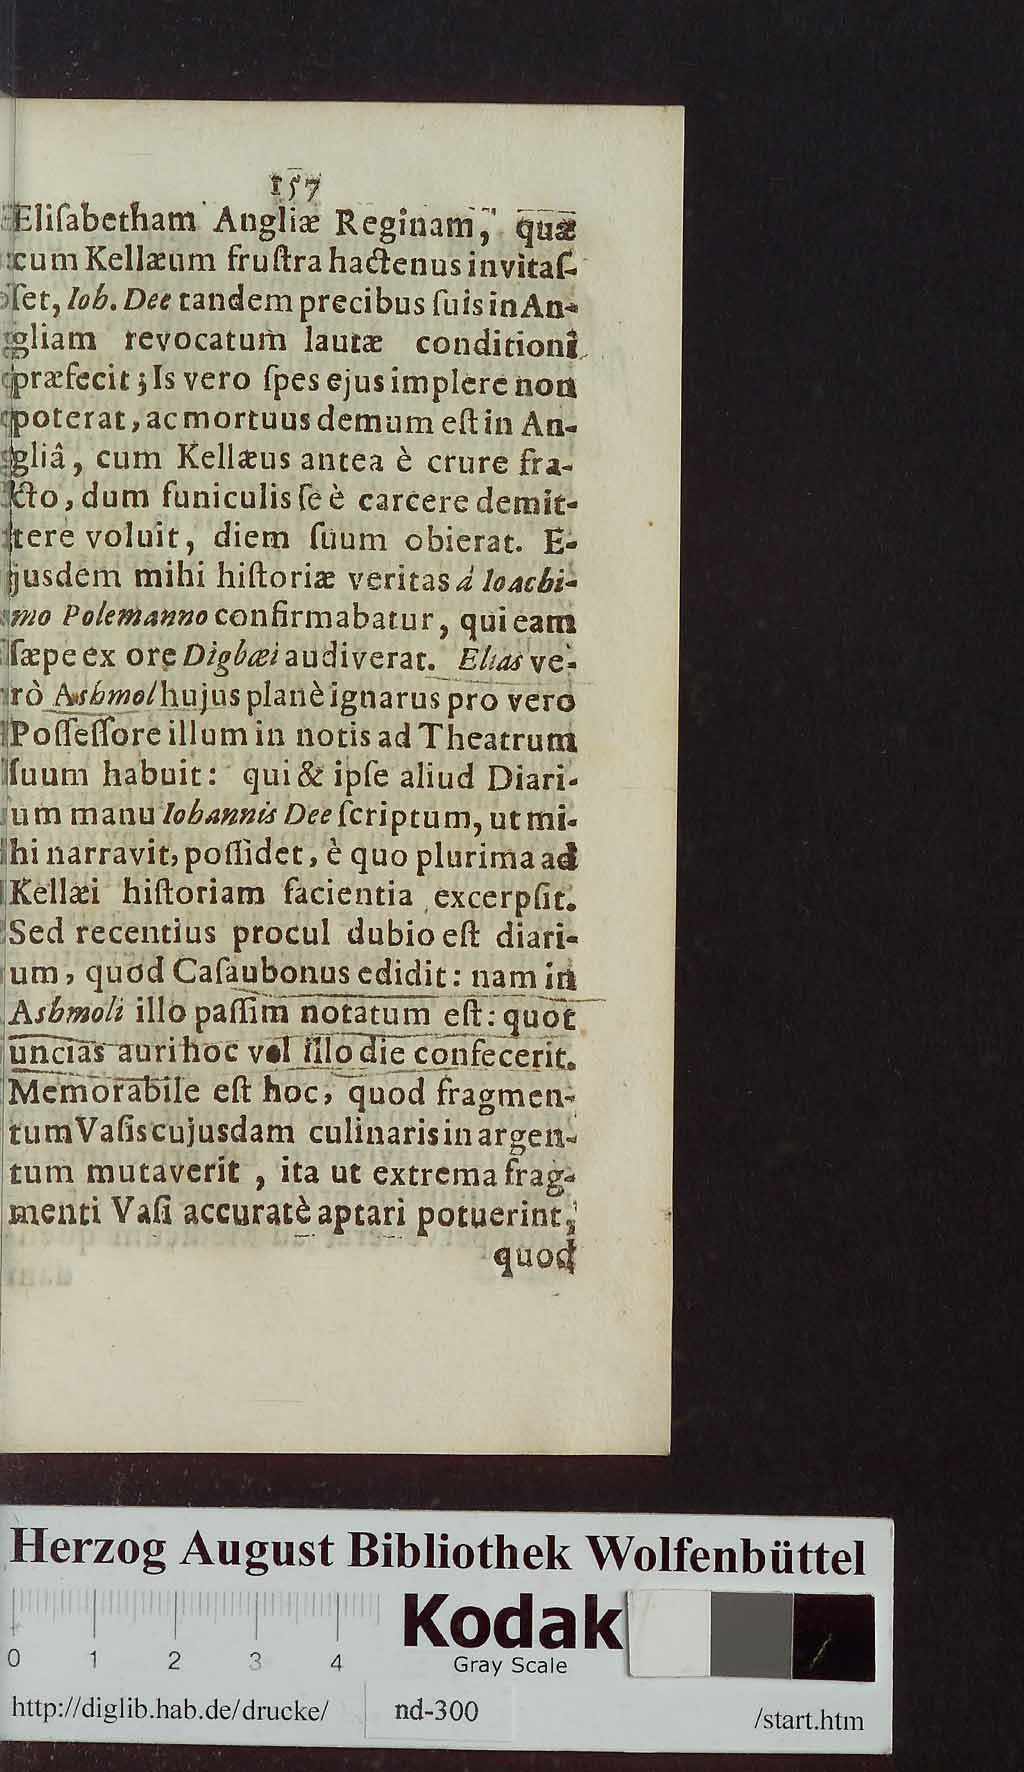 157
Eliſabetham Angliæ Reginam, quæ
cum Kellæum fruſtra hactenus invitaſ-
ſet, Ioh. Dee tandem precibus ſuis in An-
gliam revocatum lautæ conditioni
præfecit; Is vero ſpes ejus implere non
poterat, ac mortuus demum eſt in An-
gliâ, cum Kellæus antea è crure fra-
cto, dum funiculis ſe è carcere demit-
tere voluit, diem ſuum obierat. E-
jusdem mihi hiſtoriæ veritas á Ioachi-
mo Polemanno confirmabatur, qui eam
ſæpe ex ore Digbæi audiverat. Elias ve-
rò Ashmol hujus planè ignarus pro vero
Poſſeſſore illum in notis ad Theatrum
ſuum habuit: qui & ipſe aliud Diari-
um manu Iohannis Dee ſcriptum, ut mi-
hi narravit, poſſidet, è quo plurima ad
Kellæi hiſtoriam facientia excerpſit.
Sed recentius procul dubio eſt diari-
um, quod Caſaubonus edidit: nam in
Ashmoli illo paſſim notatum eſt: quot
uncias auri hoc vel illo die confecerit.
Memorabile eſt hoc, quod fragmen-
tum Vaſis cujusdam culinaris in argen-
tum mutaverit, ita ut extrema frag-
menti Vaſi accuratè aptari potuerint,
quod
Herzog August Bibliothek Wolfenbüttel
Kodak
0 1 2 3 4
Gray Scale
http://diglib.hab.de/drucke/ nd-300 /start.htm